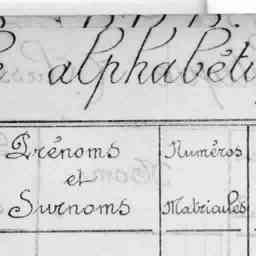 alphabéti
Prénoms Numéros
et
Surnoms Matricules